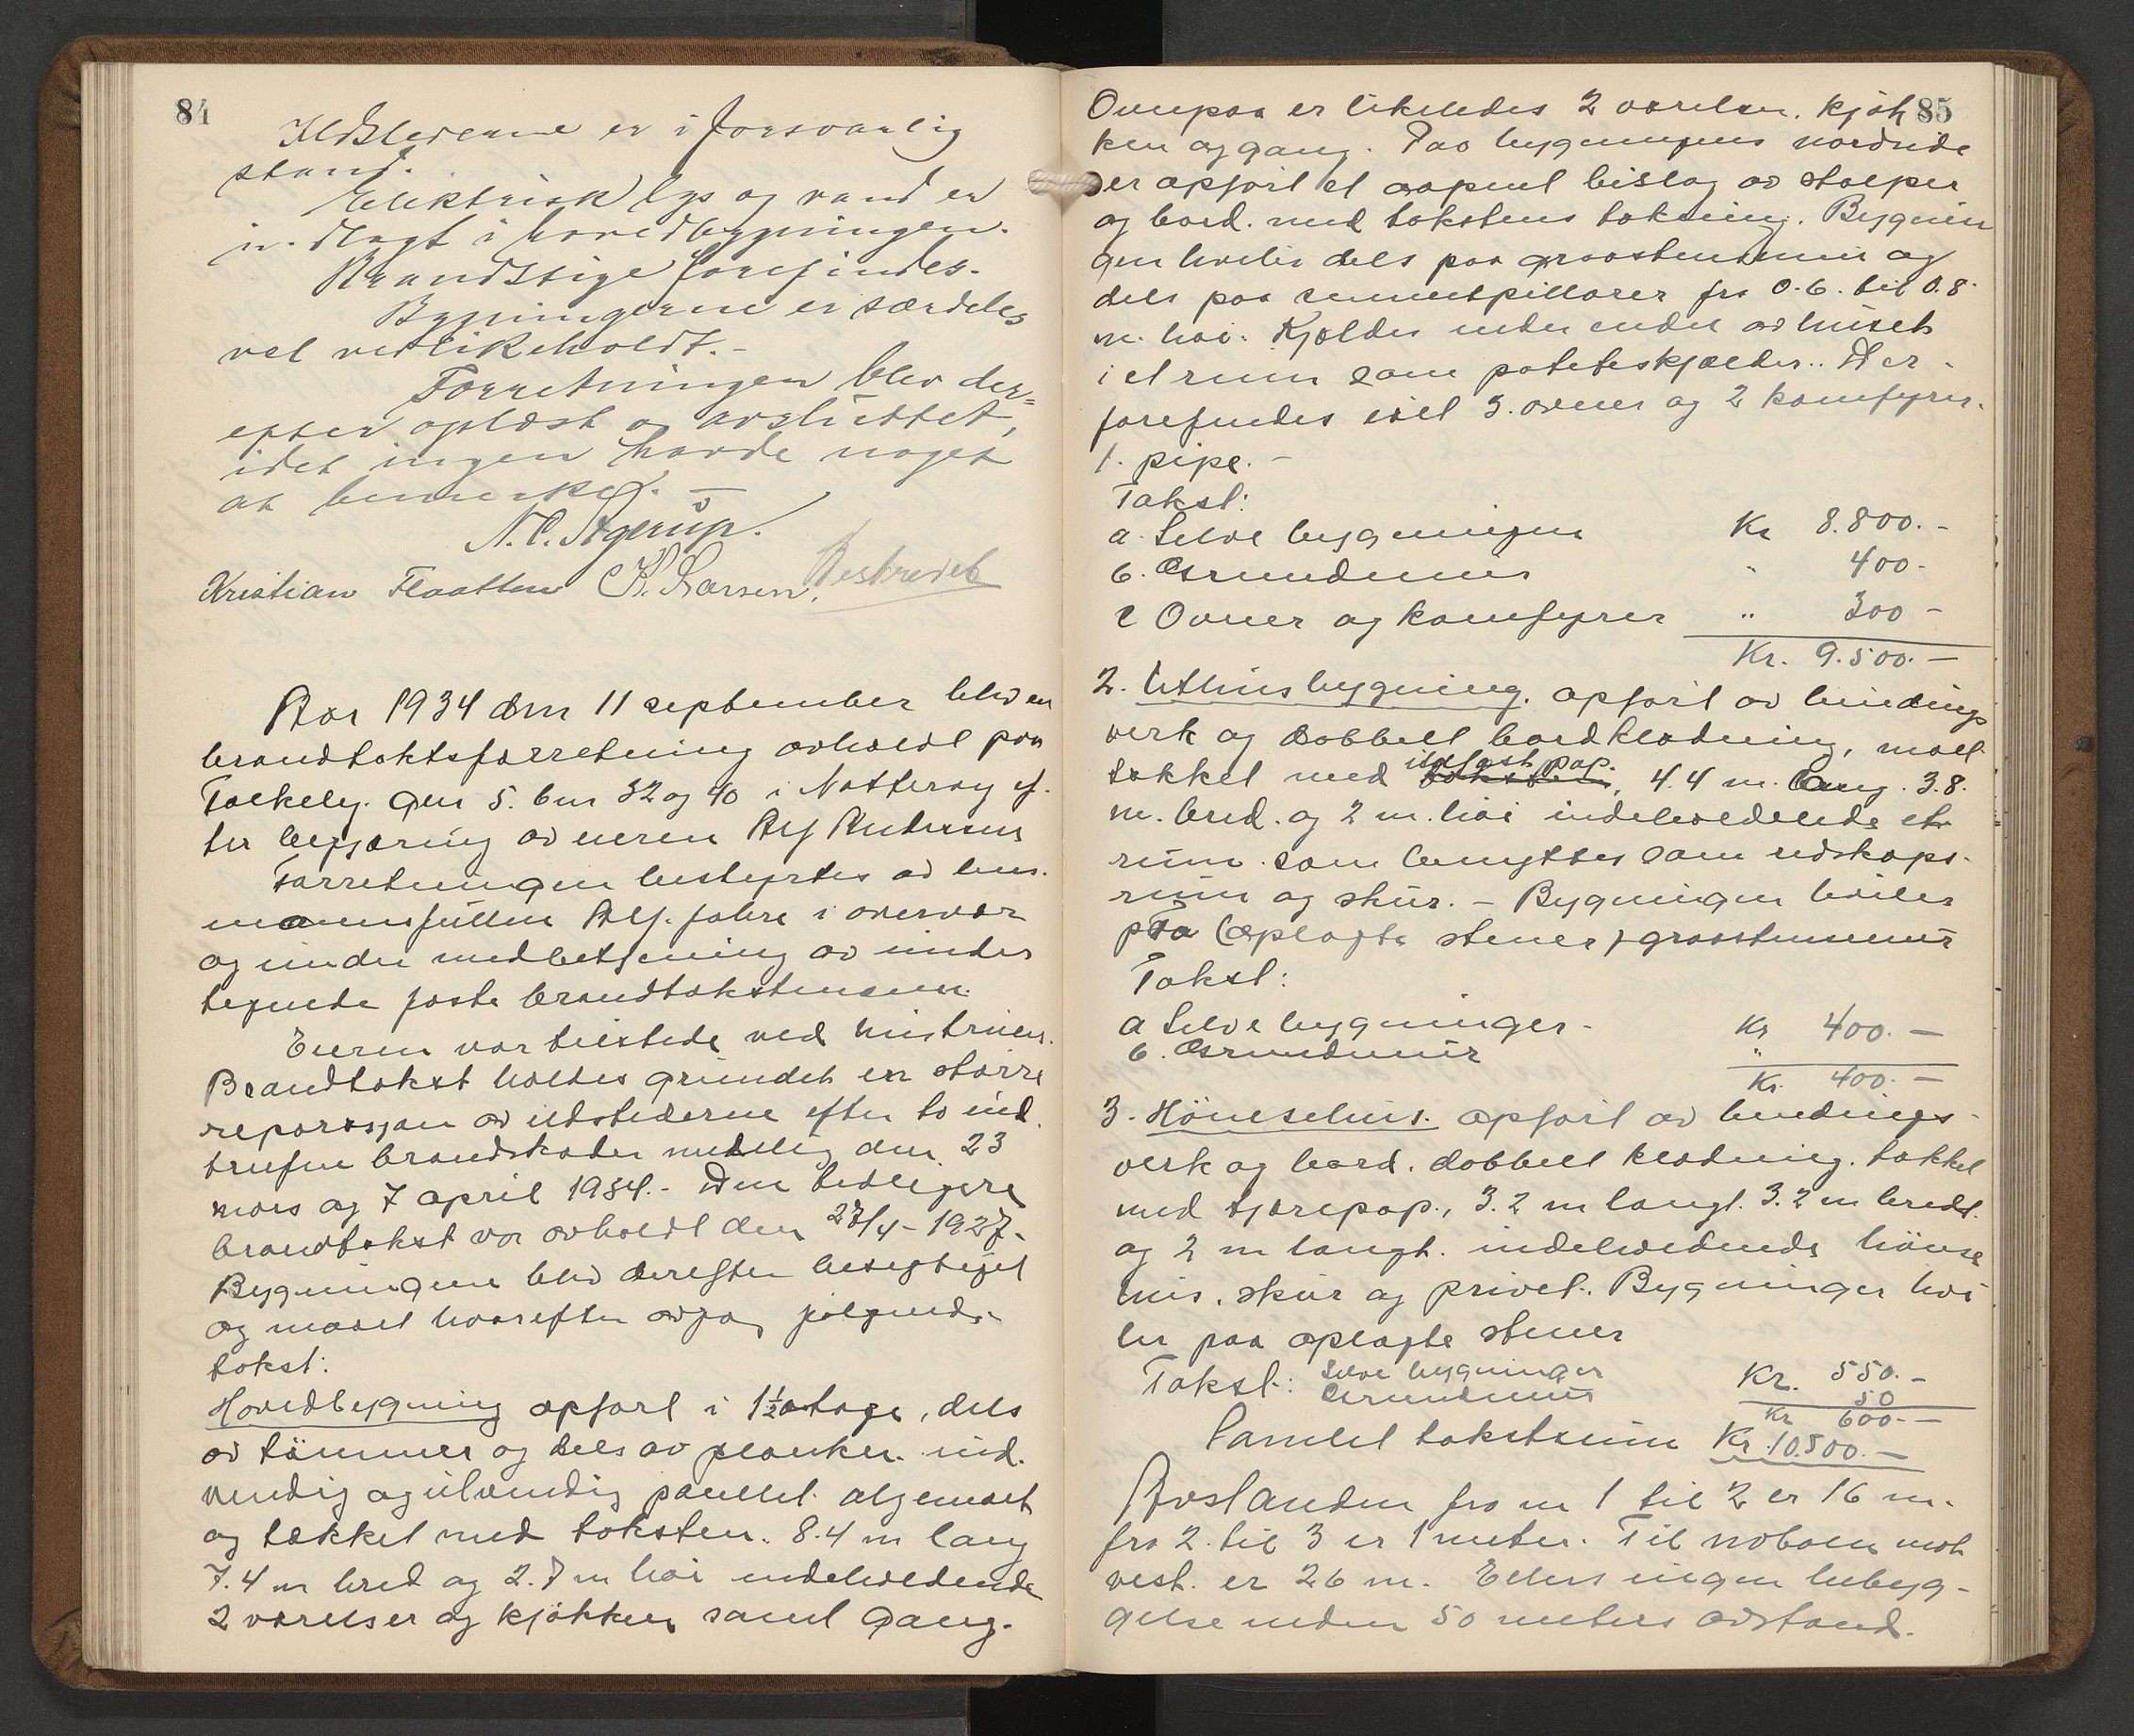 84
Ildstederne er i forsvarlig
stand.
Elektrisk lys og vand er
indlagt i hovedbygningen.
Brandstige forefindes.
Bygningerne er særdeles
vel vedlikeholdt.-
Forretningen blev der=
efter oplæst og avsluttet,
idet ingen havde noget
at bemerke. -
N. C. Agerup.
Kristian Flaatten K. Larsen.
Aar 1934 den 11 september blev en
brandtakstforretning avholdt paa
gnr 5. bnr 32 og 40 i Nøtterøy ef.
ter begjæring av eieren Alf Andersen
Forretningen bestyrtes av lens.
mannsfullm Alf. Jahre i overvær
og under medbetjening av under
tegnede faste brandtakstmænn.
Eieren var tilstede ved hustruen.
Brandtakst holdes grundet en større
reparasjon av ildstederne efter to ind.
trufne brandskader nemlig den 23
mars og 7 april 1934.- Den tidligere
brandtakst var avholdt den 27/4 - 1927.
Bygningene blev derefter besigtiget
og maalt hvorefter avgav følgende
takst:
Hovedbygning opført i 1½ etage, dels
av tømmer og dels av planker. ind.
vendig og utvendig panelet. alt malt
og tækket med taksten. 8.4 m lang
7.4 m bred og 2.7 m høi indeholdende
2 værelser og kjøkken samt gang.
85
Ovenpaa er likeledes 2 værelser. kjøk
ken og gang. Paa bygningens nordside
er opført et aapent bislag av stolper
og bord. med takstens tækning. Bygnin
gen hviler dels paa graastensmur og
dels paa cementpillarer fra 0.6. til 0.8.
m. høi. Kjælder under endel av huset
i et rum som potetskjælder.. Der.
forefindes i alt 3. ovner og 2 komfyrer.
1. pipe. -
Takst:
a. Selve bygningen Kr 8.800. -
b. Grundmur " 400.
c Ovner og komfyrer " 300 -
Kr. 9.500. -
2. Uthusbygning. opført av bindings
verk og dobbelt bordklædning, malt
tækket med isolast pap. taksten, 4.4 m. lang. 3.8.
m. bred. og 2 m. høi indeholdende et
rum. som benyttes som redskaps-
rum og skur. - Bygningen hviler
paa (oplagte stener) graastensmur
Takst:
a Selve bygninger - Kr 400. -
b. Grundmur "
Kr. 400. -
3. Hønsehus. opført av bindings-
verk og bord. dobbelt klædning. tækket
med tjærepap., 3.2 m langt. 3.2 m bredt.
og 2 m langt. indeholdende hønse
hus, skur og privet. Bygninger hvi
ler paa oplagte stener
Takst: Selve bygninger Kr. 550. -
Grundmur 50
Kr 600. -
Samlet takstsum Kr 10.500. -
Avstanden fra nr 1 til 2 er 16 m.
fra 2. til 3 er 1 meter. Til naboen mot
vest. er 26 m. Ellers ingen bebyg-
gelse inden 50 meters avstand.